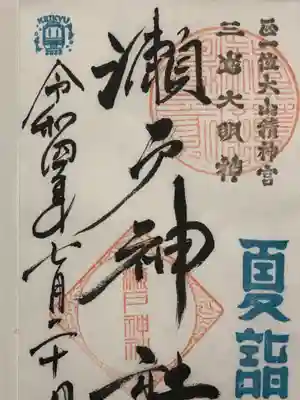 正一位大山積神宮
三島大明神
夏詣
瀬戸神社
令和四年七月二十日
KEIKYU